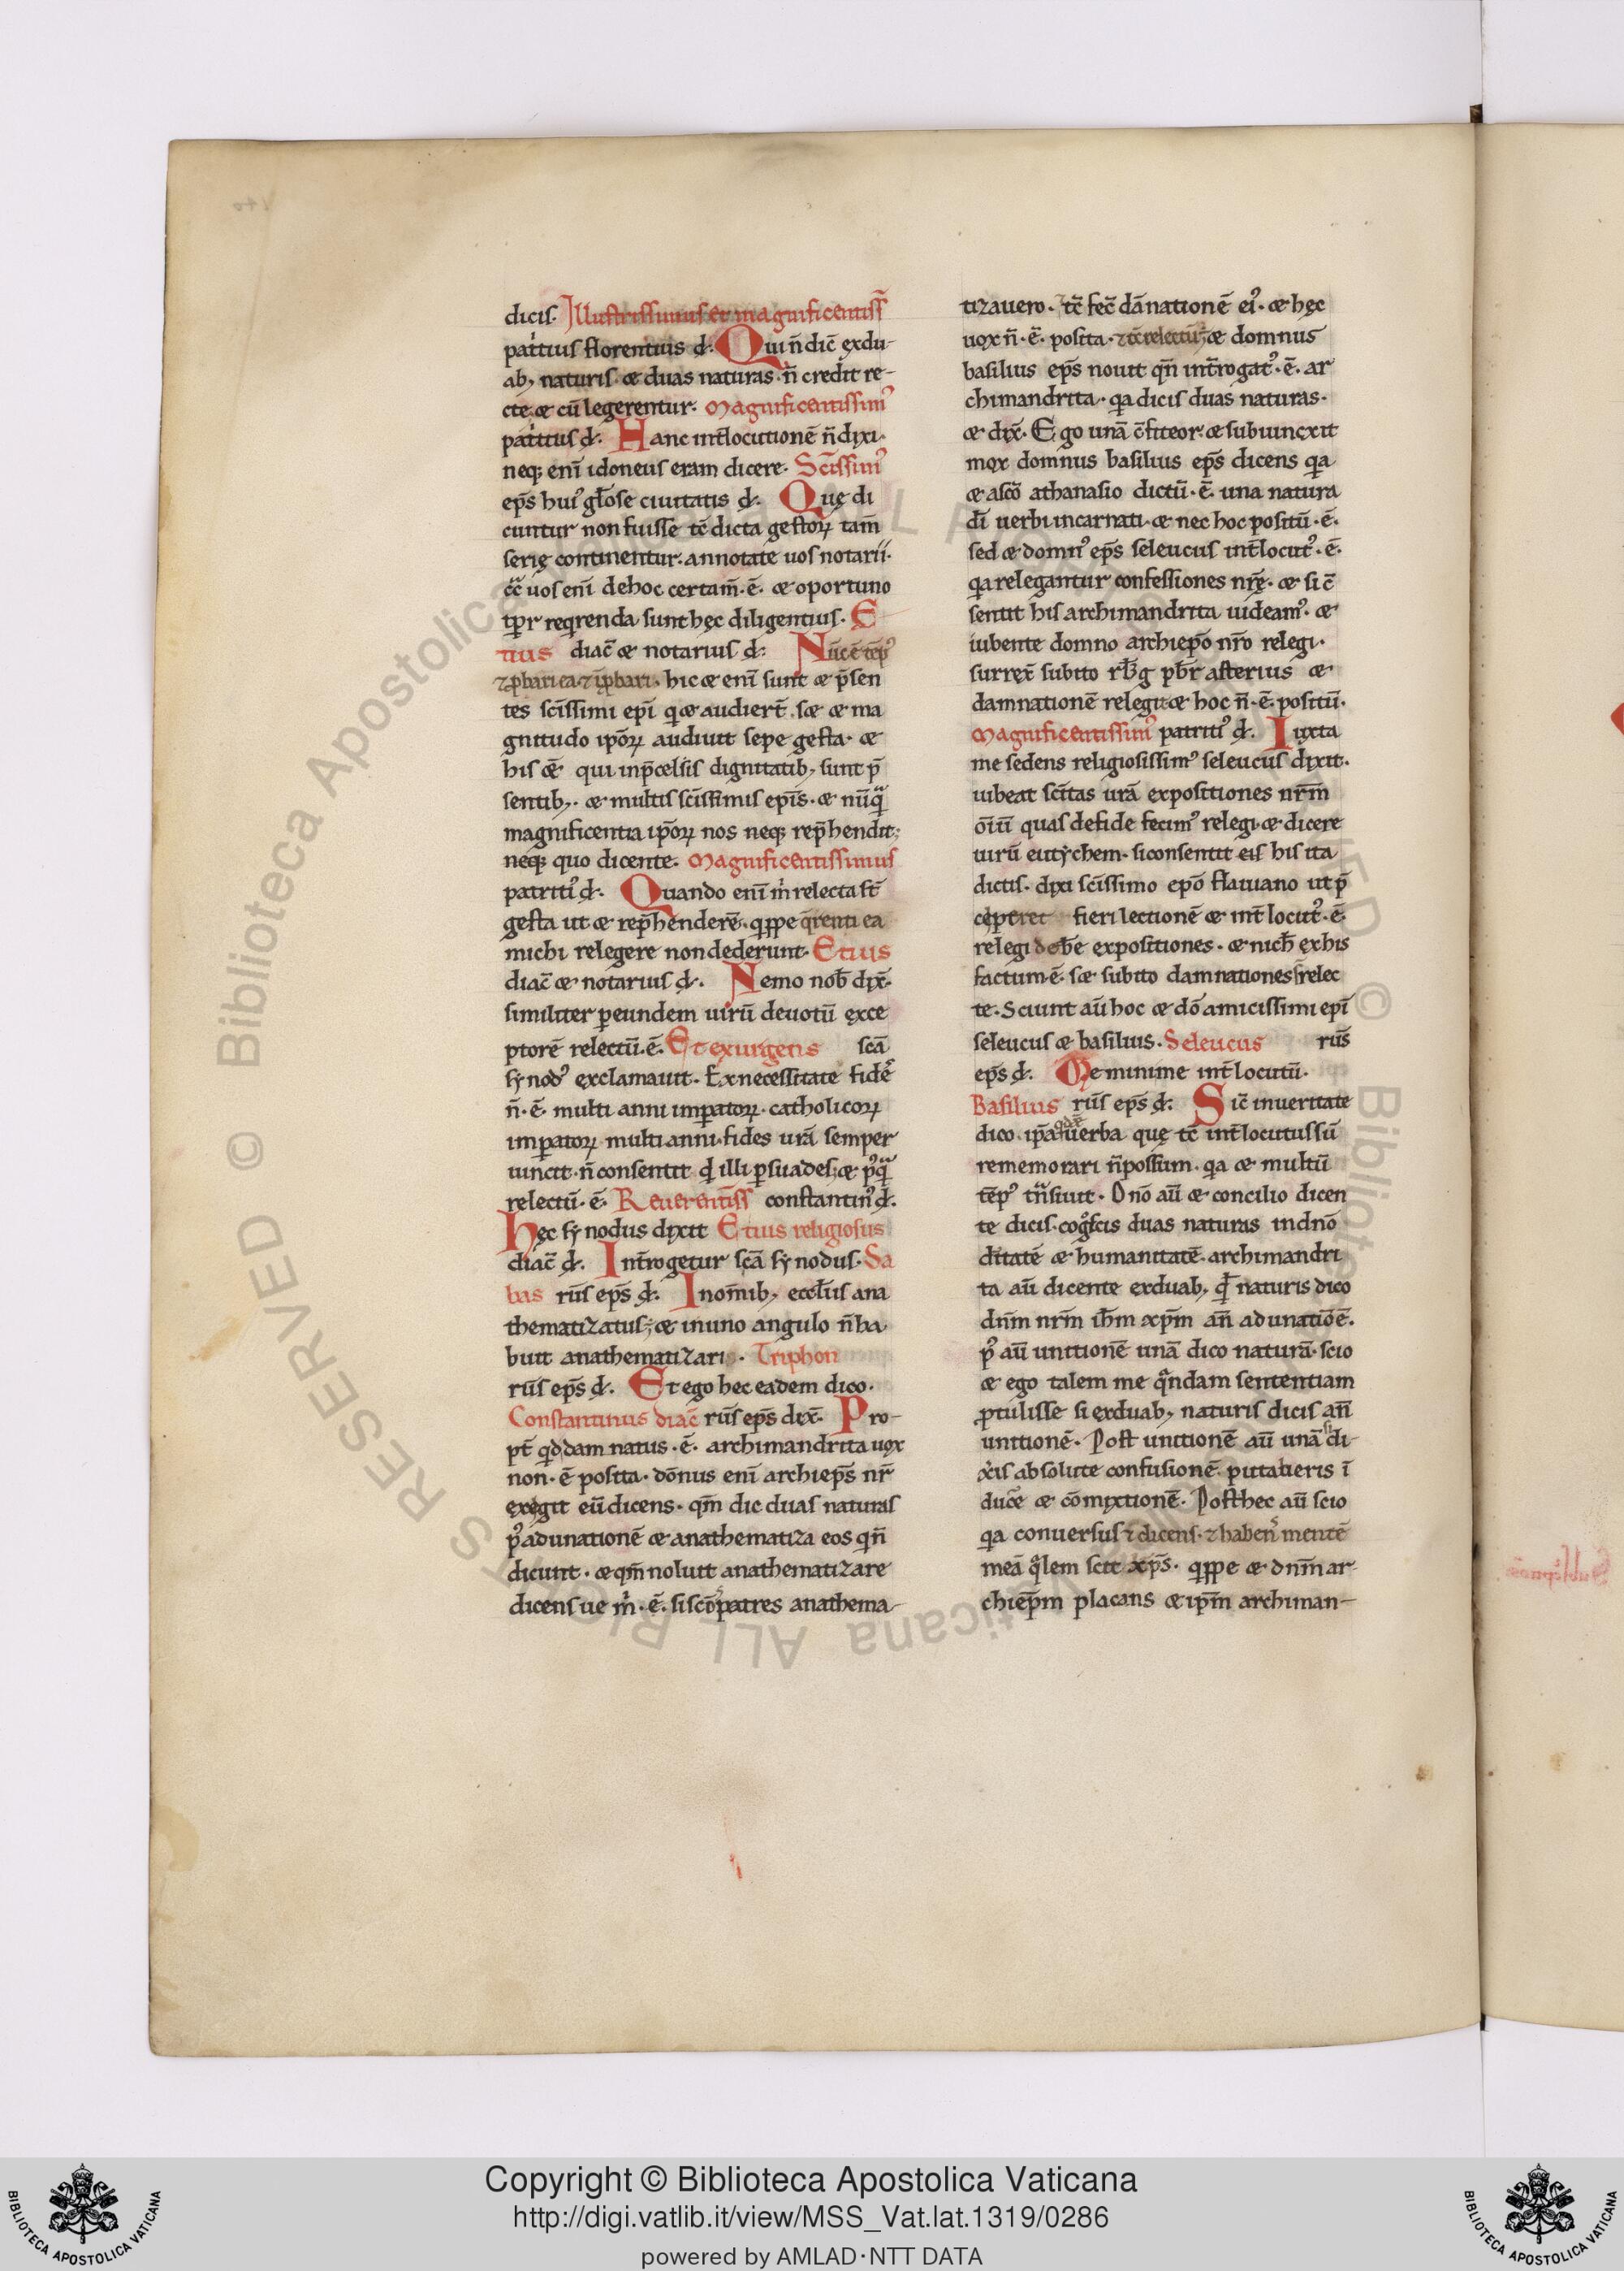 dicis. Illustrissimus et magnificentiss̄
patritius florentius đ. Qui n̄ dic̄ ex du-
ab; naturis. æ duas naturas n̄ credit re-
cte. æ cū legerentur. Magnificentissim᾽
patritius đ. Hanc int̄locutionē n̄ dixi.
neq; enī idoneus eram dicere. Sc̄issim᾽
ep̄s hui᾽ gl̄ose ciuitatis đ. Quę di
cuntur non fuisse tc̄ dicta gestoꝝ tam̄
serię continentur. annotate uos notarii.
uos enī de hoc certam̄. ē. æ oportuno
tp̄r reqrenda sunt hęc diligentius. E
tius diac̄ æ notarius đ. Nūc ē tēp᾽
⁊ p̄bari ea ⁊ īp̄bari. hic æ enī sunt æ p̄sen
tes sc̄issimi ep̄i q̄ æ audiert̄. sæ æ ma
gnitudo ip̄oꝝ audiuit sepe gesta. æ
his ǣ qui in p̄celsis dignitatib; sunt p̄
sentib;. æ multis sc̄issimis ep̄is. æ nūq̄
magnificentia ip̄oꝝ nos neq; rep̄hendit;
neq; quo dicente. Magnificentissimus
patriti᾽ đ. Quando enī m̄ relecta st̄
gesta ut æ rep̄henderē. qp̄pe q̄renti ea
michi relegere non dederunt. Etius
diac̄ æ notarius đ. Nemo nob̄ dix̄.
similiter p eundem uirū deuotū exce
ptorē relectū. ē. Et exurgens sc̄a
synod᾽ exclamauit. Ex necessitate fides̄
n̄. ē. multi anni imp̄atoꝝ. catholicoꝝ
imp̄atoꝝ multi anni. fides ur̄a semper
uincit. n̄ consentit qđ illi p̄suades; æ p᾽q̄
relectū. ē. Reuerentiss̄ constantin᾽ đ.
Hęc synodus dixit Etius religiosus
diac̄ đ. Int̄rogetur sc̄a synodus. Sa
bas rūs ep̄s đ. In om̄ib; eccl̄iis ana
thematizatus; æ in uno angulo n̄ ha
buit anathematizari. Triphon
rūs ep̄s đ. Et ego hec eadem dico.
Constantinus diac̄ rūs ep̄s dix̄. Pro-
pt̄ qddam natus. ē. archimandrita uox
non. ē posita. dōnus enī archiep̄s nr̄
exegit eū dicens. qm̄ dic duas naturas
p᾽ adunationē æ anathematiza eos qn̄
dicunt. æ qm̄ noluit anathematizare
dicens ue m̄. ē. si sc̄o᾽ patres anathema-
tizauero. tc̄ fec̄ dānationē ei᾽. æ hęc
uox n̄. ē. posita. ⁊ tc̄ relectū; æ domnus
basilius ep̄s nouit qn̄ int̄rogat᾽. ē. ar
chimandrita. qa dicis duas naturas.
æ dix̄. Ego unā c̄fiteor. æ subiunxit
mox domnus basilius ep̄s dicens qa
æ a sc̄o athanasio dictū. ē. una natura
dī uerbi incarnati. æ nec hoc positū. ē.
sed æ domn᾽ ep̄s seleucus int̄locut᾽. ē.
qa relegantur confessiones nr̄ę. æ si c̄
sentit his archimandrita uideam᾽. æ
iubente domno archiep̄o nr̄o relegi.
surrex̄ subito pb̄r asterius æ
damnationē relegit æ hoc n̄. ē positū.
Magnificentissim᾽ patriti᾽ đ. Iuxta
me sedens religiosissim᾽ seleucus dixit.
iubeat sc̄itas ur̄a expositiones nr̄m̄
oīu quas de fide fecim᾽ relegi. æ dicere
uirū eutychem. si consentit eis his ita
dictis. dixi sc̄issimo ep̄o flauiano ut p̄
ciperet fieri lectionē æ int̄locut᾽. ē
relegi debe expositiones. æ nich̄ ex his
factum ē. sæ subito damnationes s̄ relec
te. Sciunt aū hoc æ dō amicissimi ep̄i
seleucus æ basilius. Seleucus rūs
ep̄s đ. Me minime int̄locutū.
Basilius rūs ep̄s đ. Sic̄ in ueritate
dico ip̄a uerba quę tc̄ int̄locutus sū
rememorari n̄ possum. qa æ multū
tēp᾽ t̄nsiuit. Dn̄o aū æ concilio dicen
te dicis. cog̊scis duas naturas in dn̄o
d̄itatē æ humanitatē. archimandri
ta aū dicente ex duab; qđ naturis dico
dn̄m nr̄m ih̄m xp̄m an̄ adunatiōē.
p᾽ aū unitionē unā dico naturā. scio
æ ego talem me q̄ndam sententiam
p̄tulisse si ex duab; naturis dicis an̄
unitionē. Post unitionē aū unā si di-
xis absolute confusionē putaberis ī
ducē æ cōmixtionē. Post hec aū scio
qa conuersus ⁊ dicens. ⁊ haben᾽ mentē
meā q̄lem scit xp̄s. qp̄pe æ dn̄m ar-
chiep̄m placans æ ip̄m archiman-
Copyright © Biblioteca Apostolica Vaticana
http://digi.vatlib.it/view/MSS_Vat.lat.1319/0286
powered by AMLAD·NTT DATA